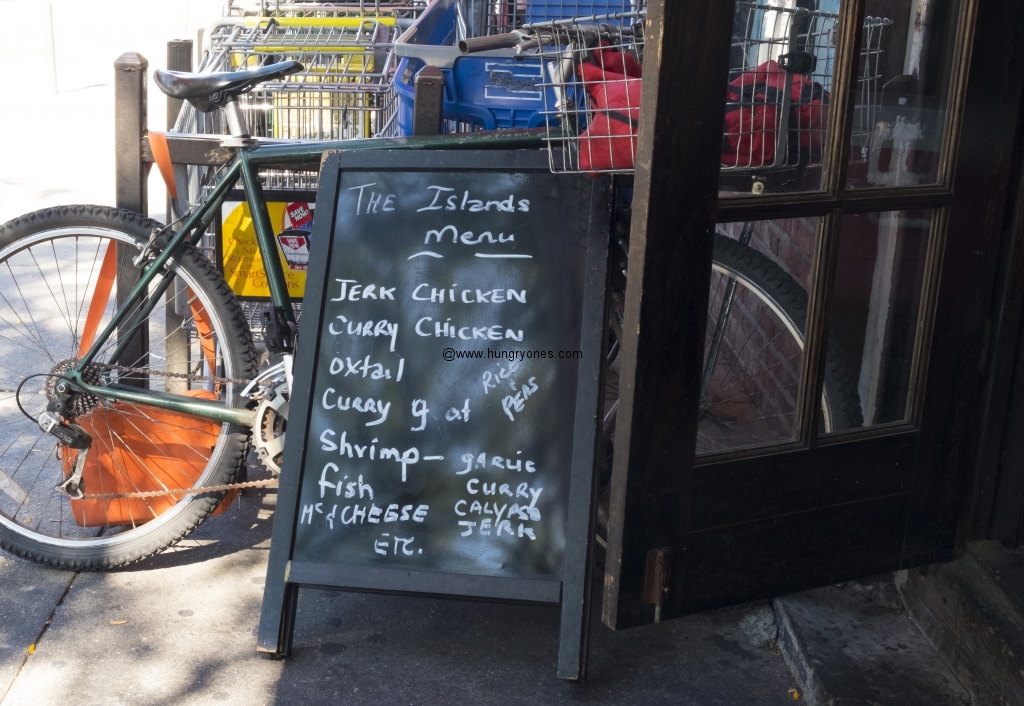 The Islands
Menu
JERK CHICKEN
CURRY CHICKEN
oxtail
RICE
&
PEAS
CURRY g at
Shrimp— gARLIC
fish CURRY
Mc & CHEESE CALYPSO
JERK
ETC.
@www.hungryones.com
SAVE
NOW!